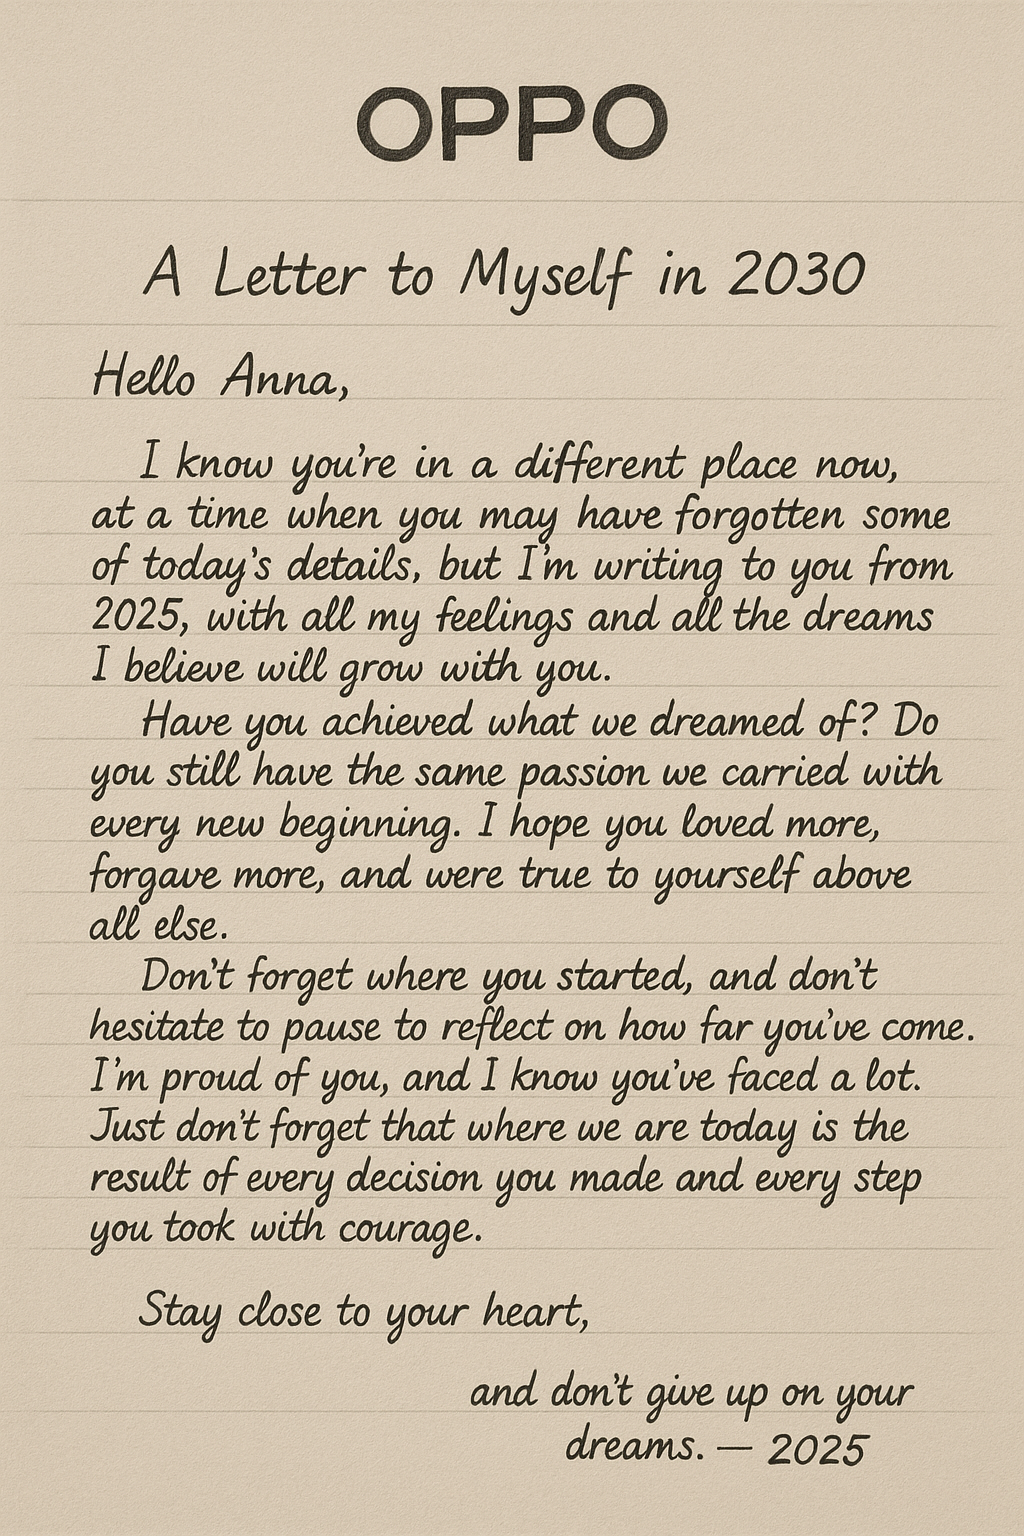 OPPO
A Letter to Myself in 2030
Hello Anna,
I know you're in a different place now,
at a time when you may have forgotten some
of today's details, but I'm writing to you from
2025, with all my feelings and all the dreams
I believe will grow with you.
Have you achieved what we dreamed of? Do
you still have the same passion we carried with
every new beginning. I hope you loved more,
forgave more, and were true to yourself above
all else.
Don't forget where you started, and don't
hesitate to pause to reflect on how far you've come.
I'm proud of you, and I know you've faced a lot.
Just don't forget that where we are today is the
result of every decision you made and every step
you took with courage.
Stay close to your heart,
and don't give up on your
dreams. — 2025